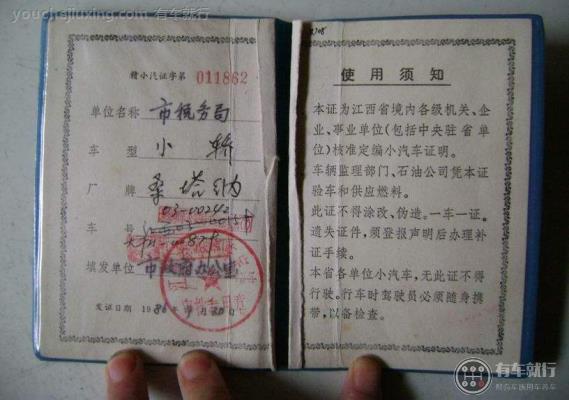 youchejiuxing.com 有车就行
赣小汽证字第 011862
单位名称 市税务局
车 型 小轿
厂 牌 桑塔纳
03-00242
车 号
填发单位 市政府办公室
发证日期 1986年 月 日
使用须知
本证为江西省境内各级机关、企
业、事业单位(包括中央驻省单
位)核准定编小汽车证明。
车辆监理部门、石油公司凭本证
验车和供应燃料。
此证不得涂改、伪造。一车一证。
遗失证件,须登报声明后办理补
证手续。
本省各单位小汽车,无此证不得
行驶。行车时驾驶员必须随身携
带,以备检查。
有车就行